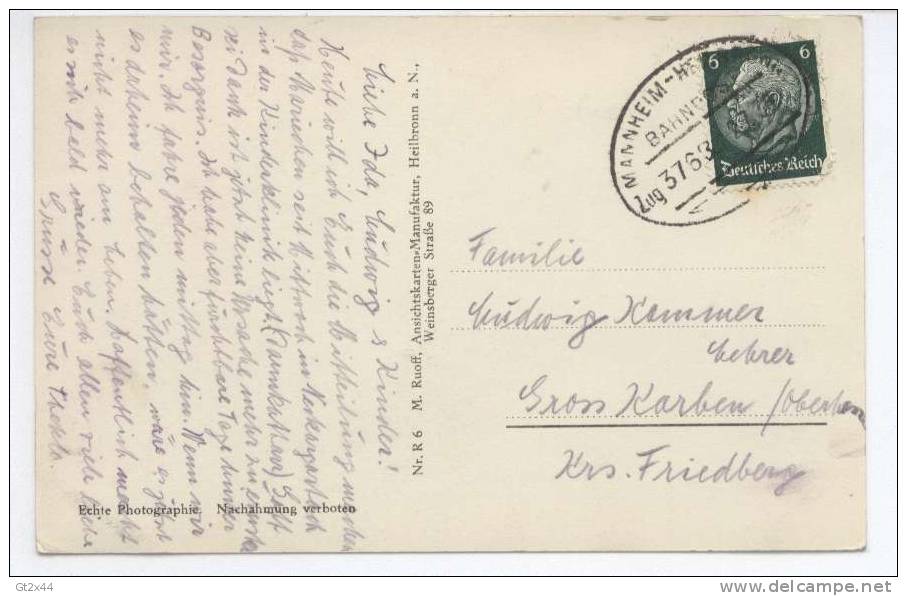 Liebe Ida, Ludwig & Kinder!
Heute will ich Euch die Mitteilung machen
daß Mariechen seit Mittwoch in Neckargemünd
in der Kinderklinik liegt. Gott
sei Dank ist jetzt keine Ursache mehr zu ernster
Besorgnis. Ich habe aber furchtbare Tage hinter
mir. Ich fahre jeden mittag hin. Wenn wir
es daheim behalten hätten, wäre es jetzt
nicht mehr am Leben. Hoffentlich
es mich bald wieder. Euch allen viele
Grüsse Eure
Echte Photographie. Nachahmung verboten
Nr. R 6 M. Ruoff, Ansichtskarten-Manufaktur, Heilbronn a. N.,
Weinsberger Straße 89
MANNHEIM-HE
BAHNPOST
Zug 3763
6 6
Deutsches Reich
Familie
Ludwig Kammer
Lehrer
Gross Karben /Oberhess
Krs. Friedberg
Gt2x44
http://www.delcampe.net